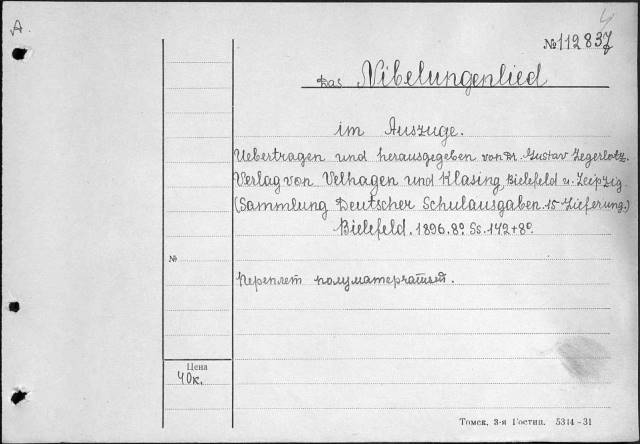 A.
№112837
Das Nibelungenlied
im Auszuge.
Uebertragen und herausgegeben von Dr. Gustav Legerlotz.
Verlag von Velhagen und Klasing Bielefeld u. Leipzig
(Sammlung Deutscher Schulausgaben. 15 Lieferung.)
Bielefeld. 1896. 8º. Ss. 142+8º.
№
Переплет полуматерчатый.
Цена
40к.
Томск, 3-я Гостип. 5314-31